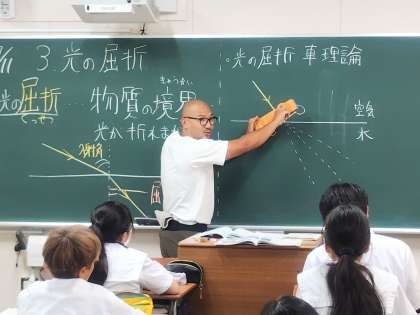 3 光の屈折
光の屈折
くっせつ
物質の境界
きょうかい
光が折れ
入射角
。光の屈折 車理論
空気
水